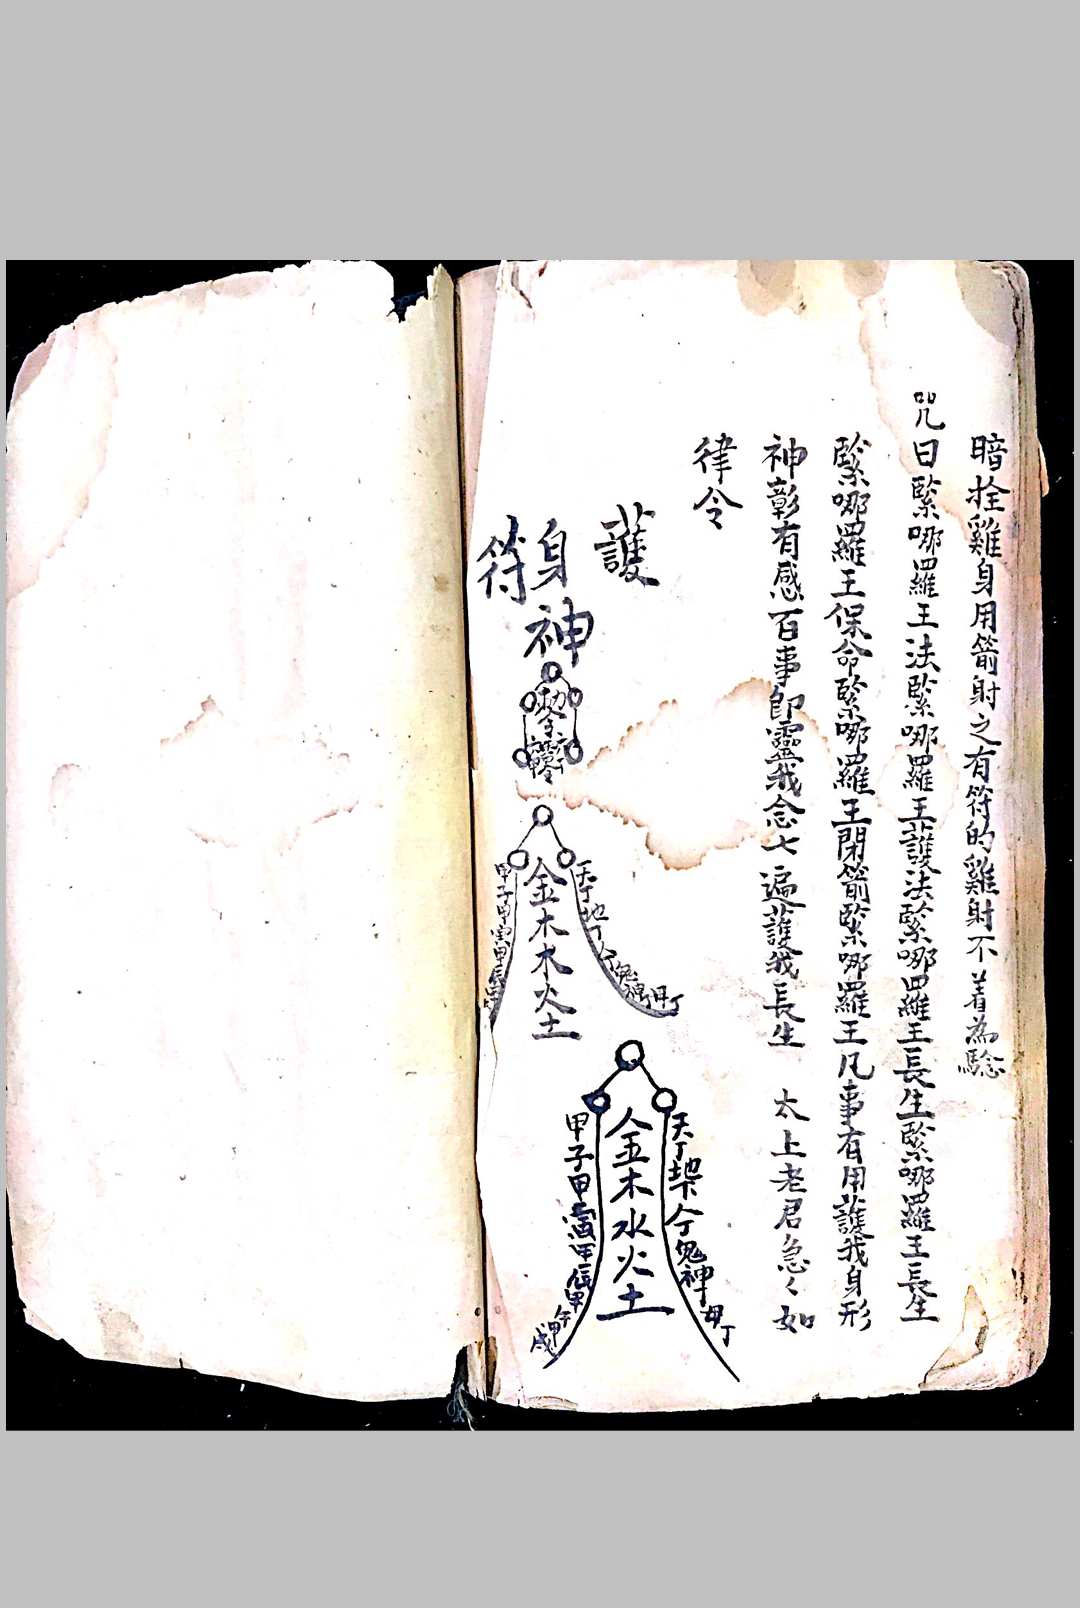 暗拴雞身用箭射之有符的雞射不着為驗
咒曰緊哪羅王法緊哪羅王護法緊哪羅王長生緊哪羅王長生
緊哪羅王保命緊哪羅王閉箭緊哪羅王凡事有用護我身形
神彰有感百事即靈我念七遍護我長生 太上老君急々如
律令
護
身
符
神
天丁地丁人丁鬼神毋丁
金木水火土
甲子甲寅甲辰
天丁
人丁鬼神毋丁
金木水火土
甲子甲寅甲辰甲午甲戌